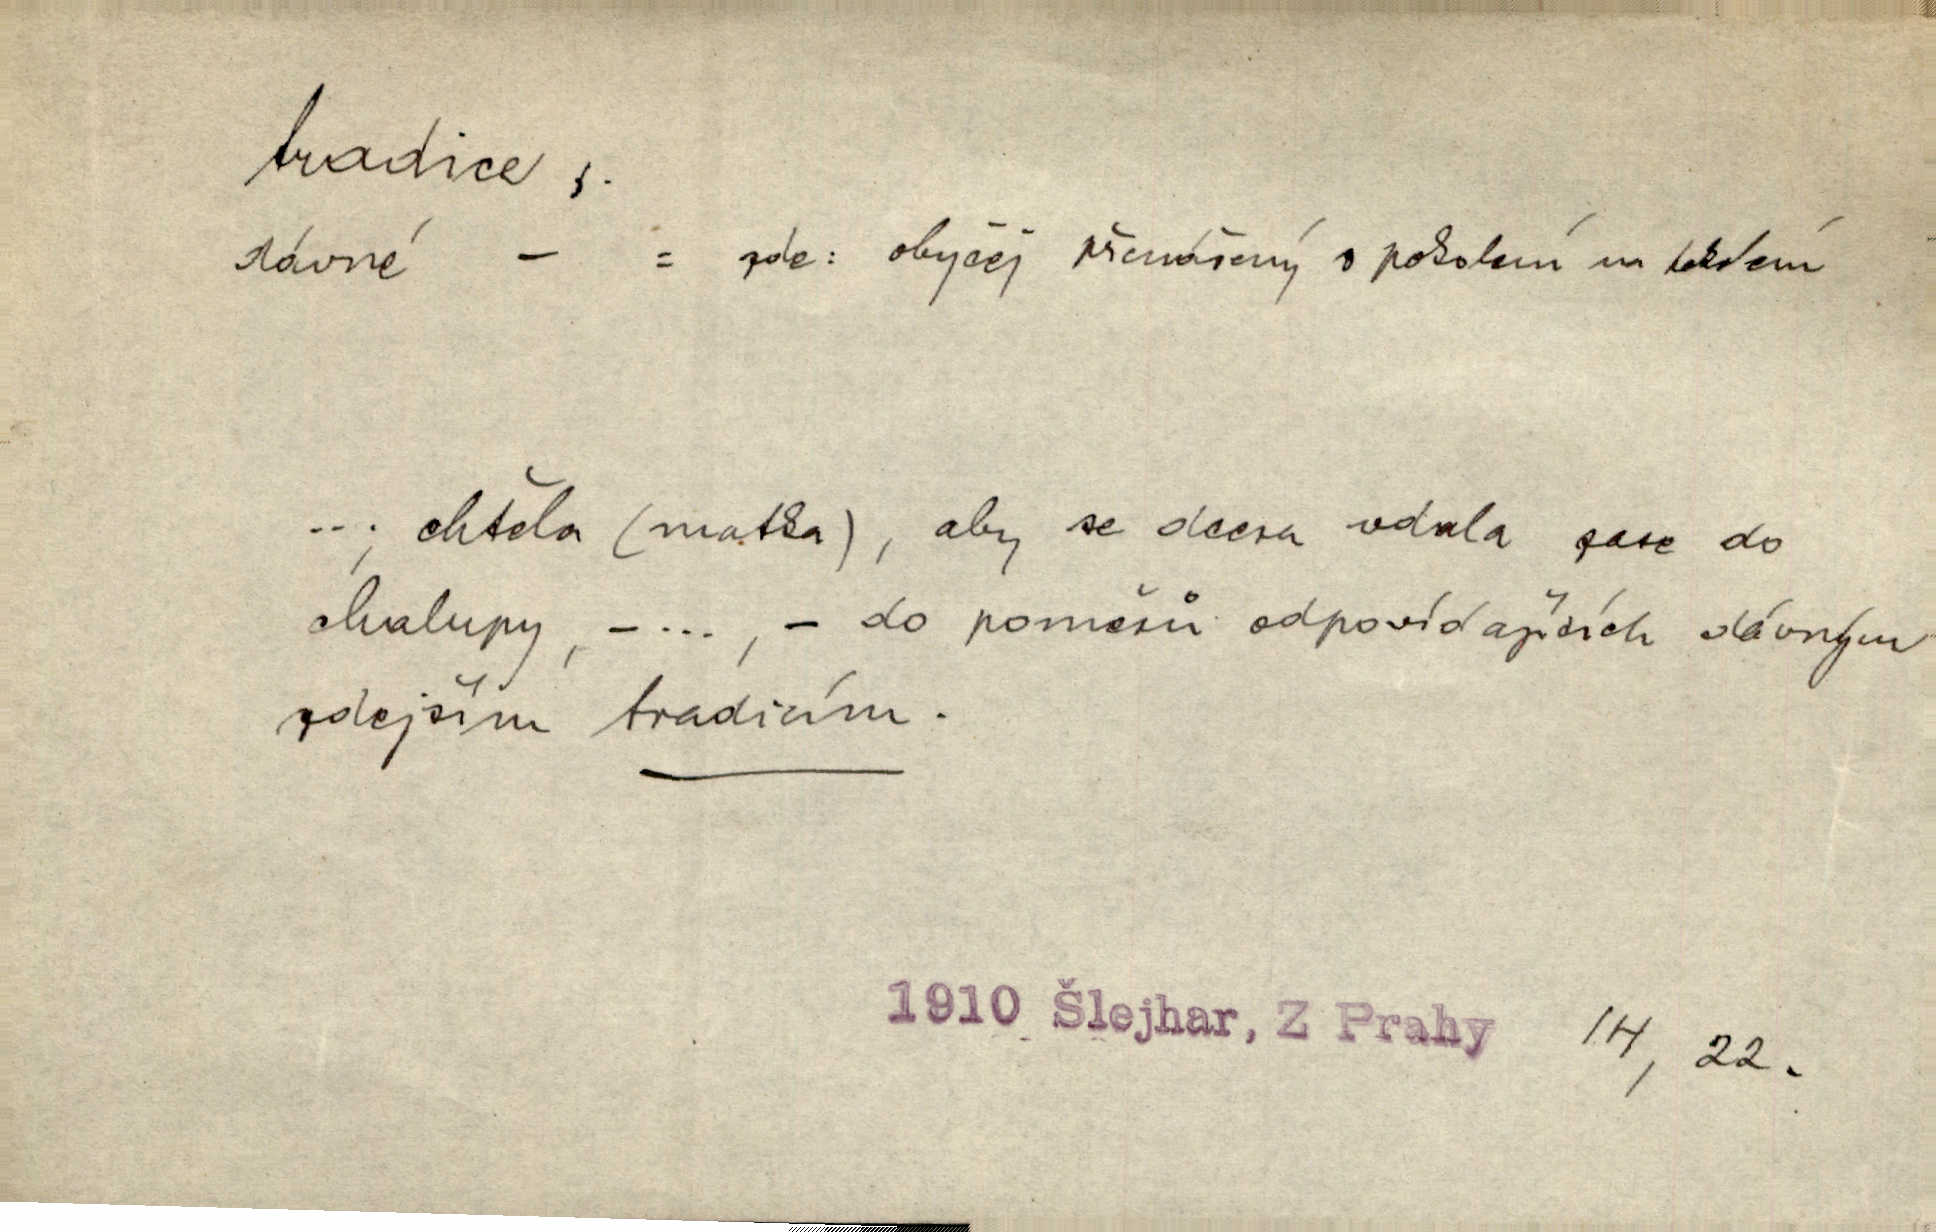 tradice, ž.
dávné – = zde: obyčej přenášený s pokolení na pokolení
...; chtěla (matka), aby se dcera vdala zase do
chalupy, – ..., – do poměrů odpovídajících dávným
zdejším tradicím.
1910 Šlejhar, Z Prahy 14, 22.